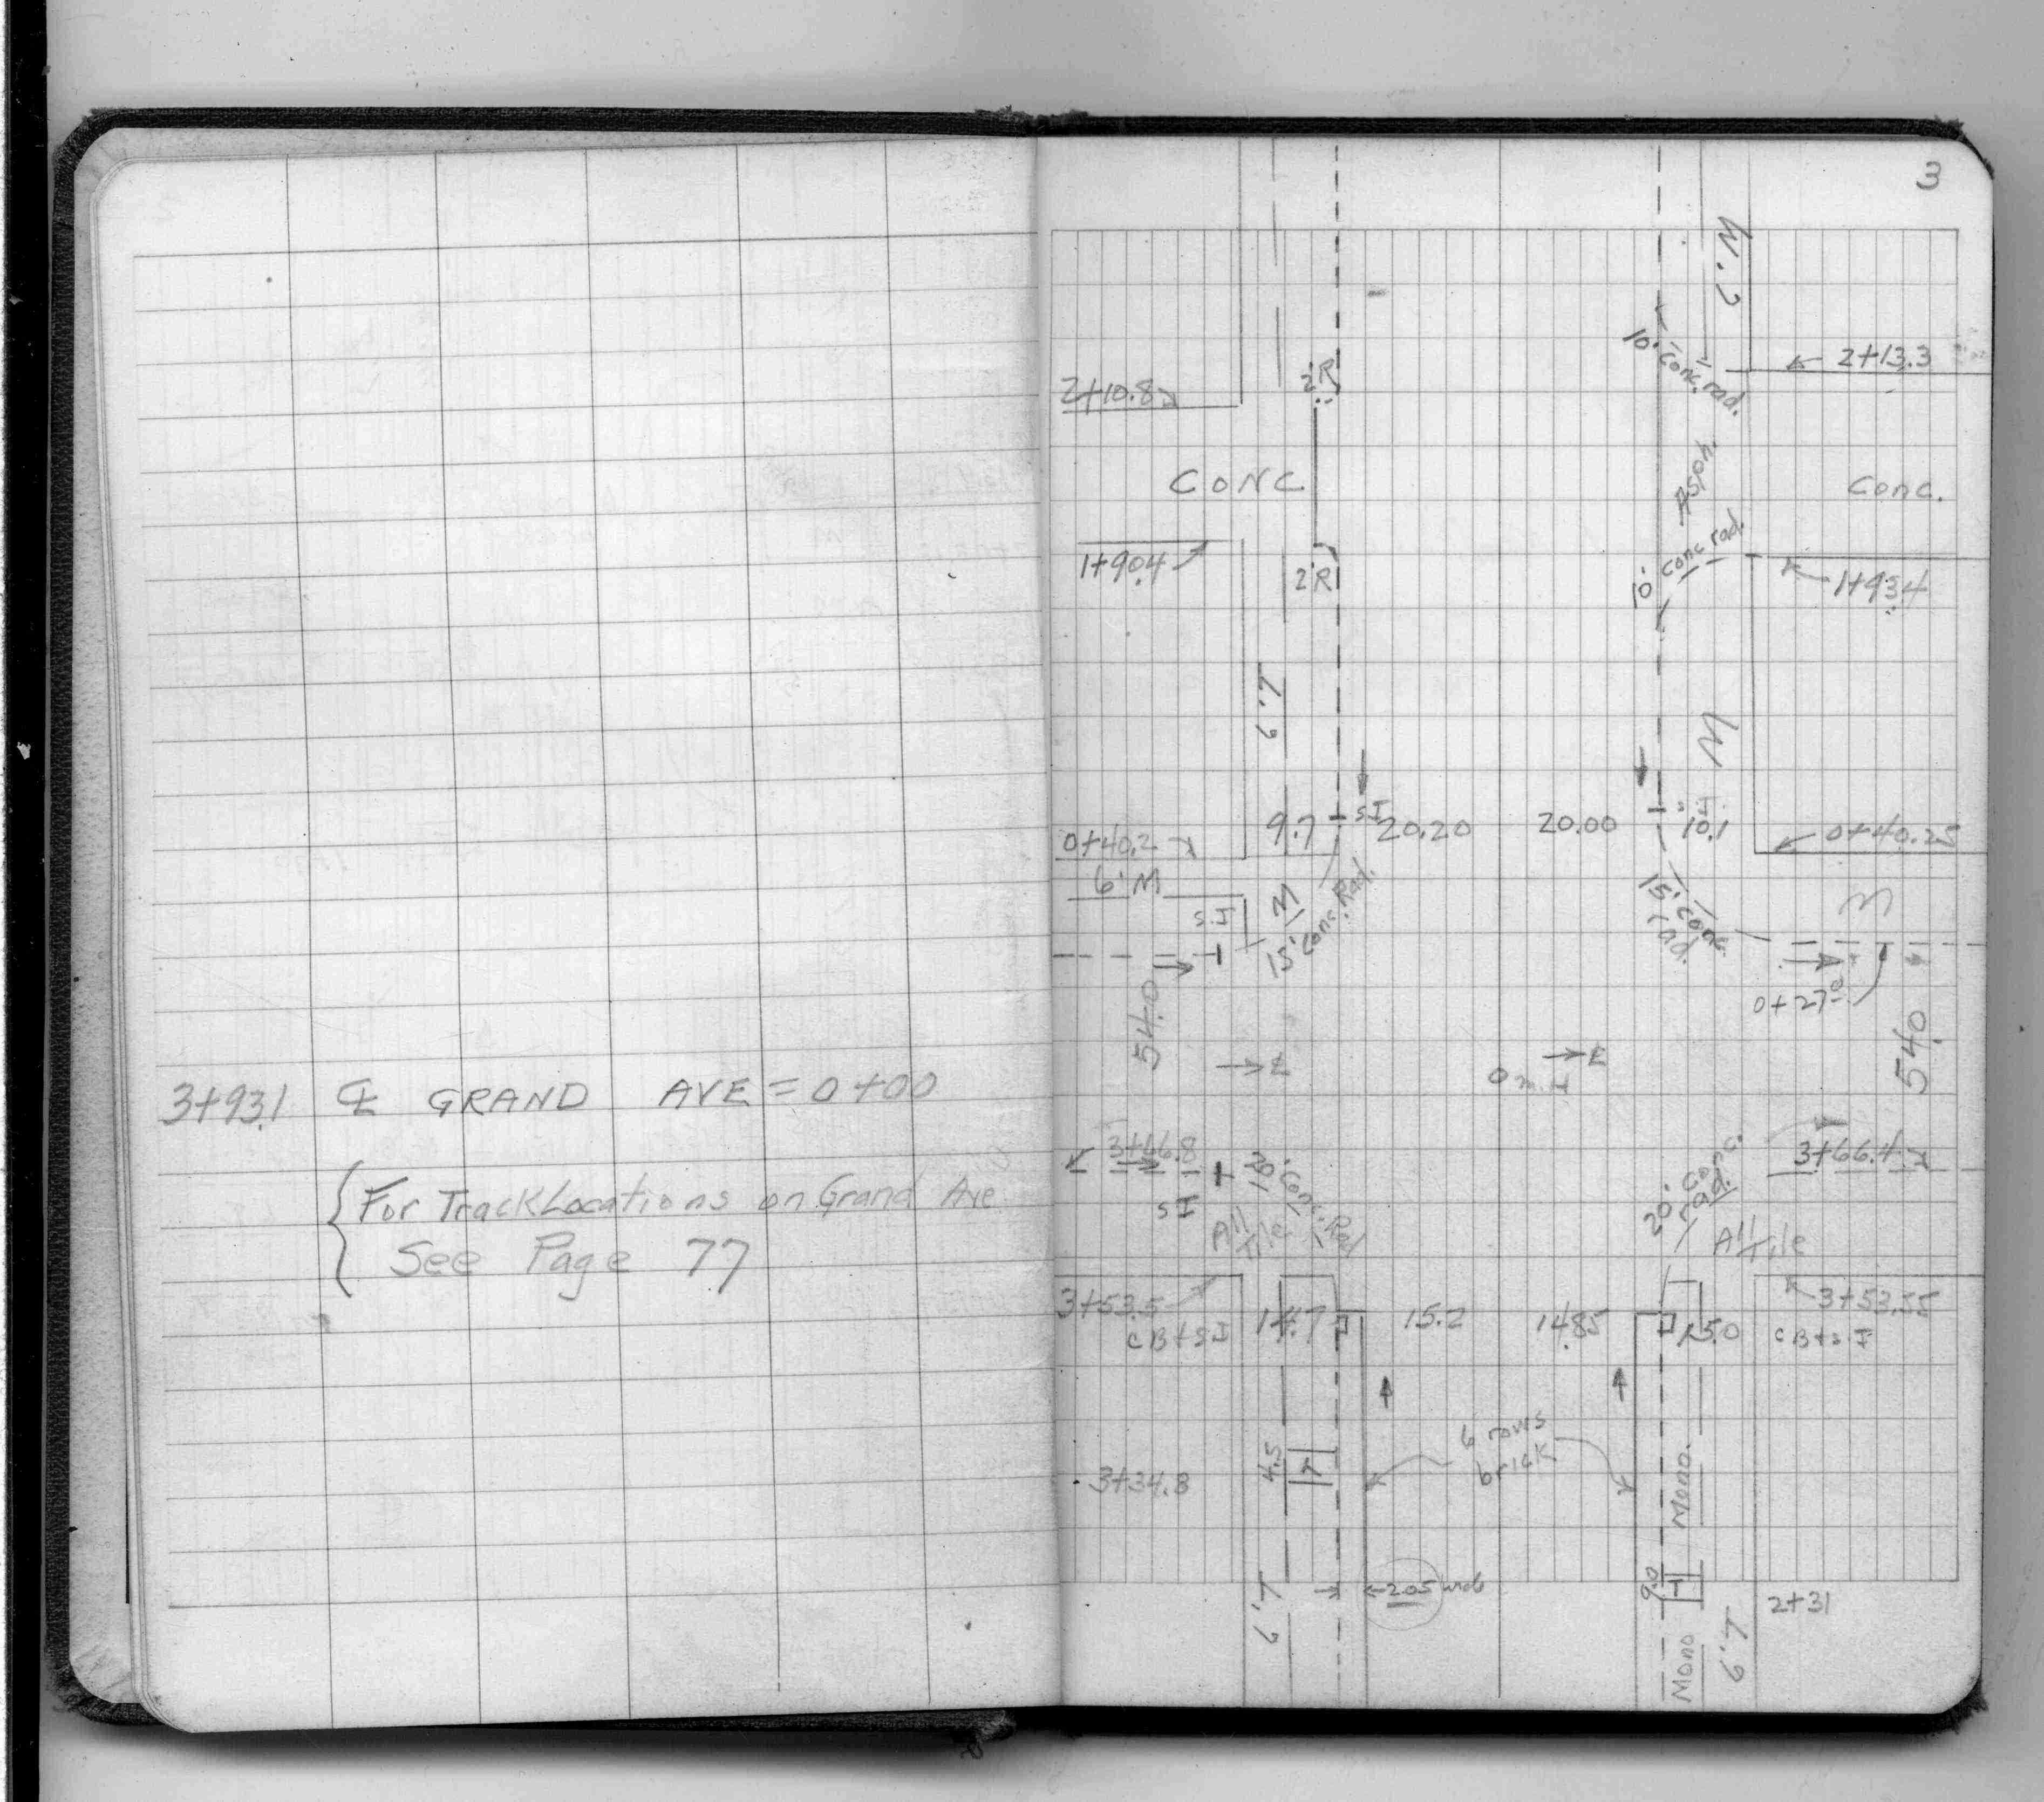 3+93.1 ℄ GRAND AVE = 0+00
For Track Locations on Grand Ave
See Page 77
3
2+13.3
10' conc. rad.
2'R
2+10.8
CONC
Asph
Conc.
1+90.4
2'R
10' conc rad.
1+93.4
6'T
M
9.7 S.I 20.20 20.00 S.I. 10.1
0+40.2
0+40.25
6' M
S.I
M
15' Conc. Rad.
15' Conc rad.
M
0+27.0
54.0
54.0
3+66.4
20' Conc. Rad
20' Conc. rad.
S I
All Tile
All Tile
3+53.5
3+53.55
CB+SI 14.7 15.2 14.85 15.0 CB+S.I
6 rows
brick
3+34.8
4.5
T
Mono.
6'T
2.05 wide
9.0
T
2+31
Mono
6'T